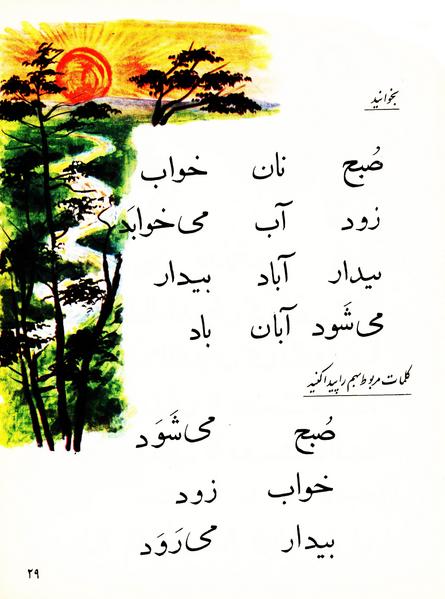 بخوانید
صُبح نان خواب
زود آب می‌خوابَد
بیدار آباد بیدار
می‌شَود آبان باد
کلمات مربوط بهم را پیدا کنید
صُبح می‌شَوَد
خواب زود
بیدار می‌رَوَد
۲۹